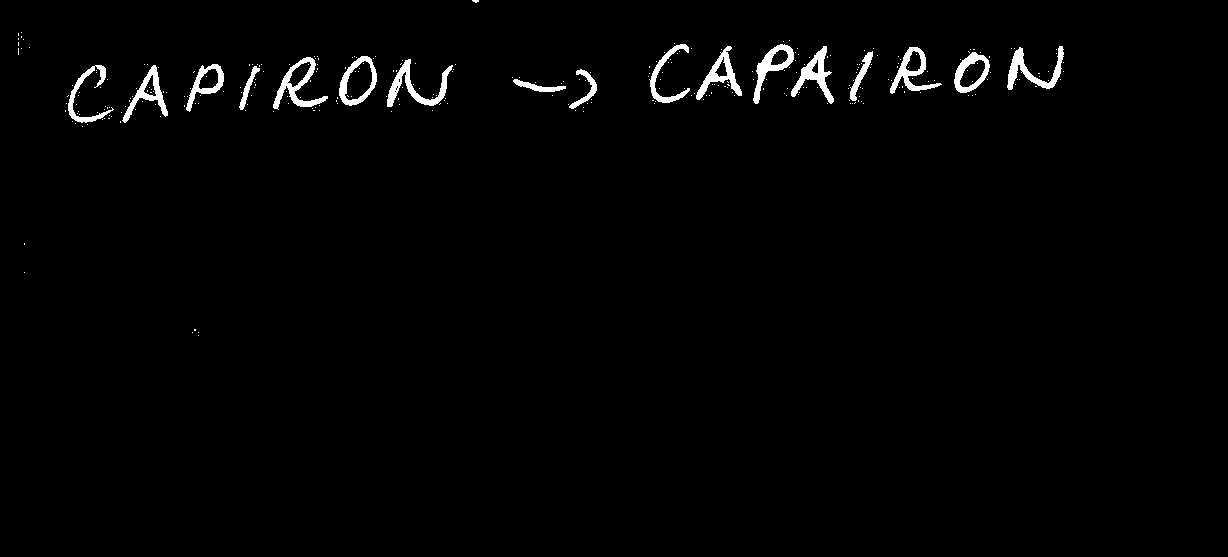 CAPIRON → CAPAIRON